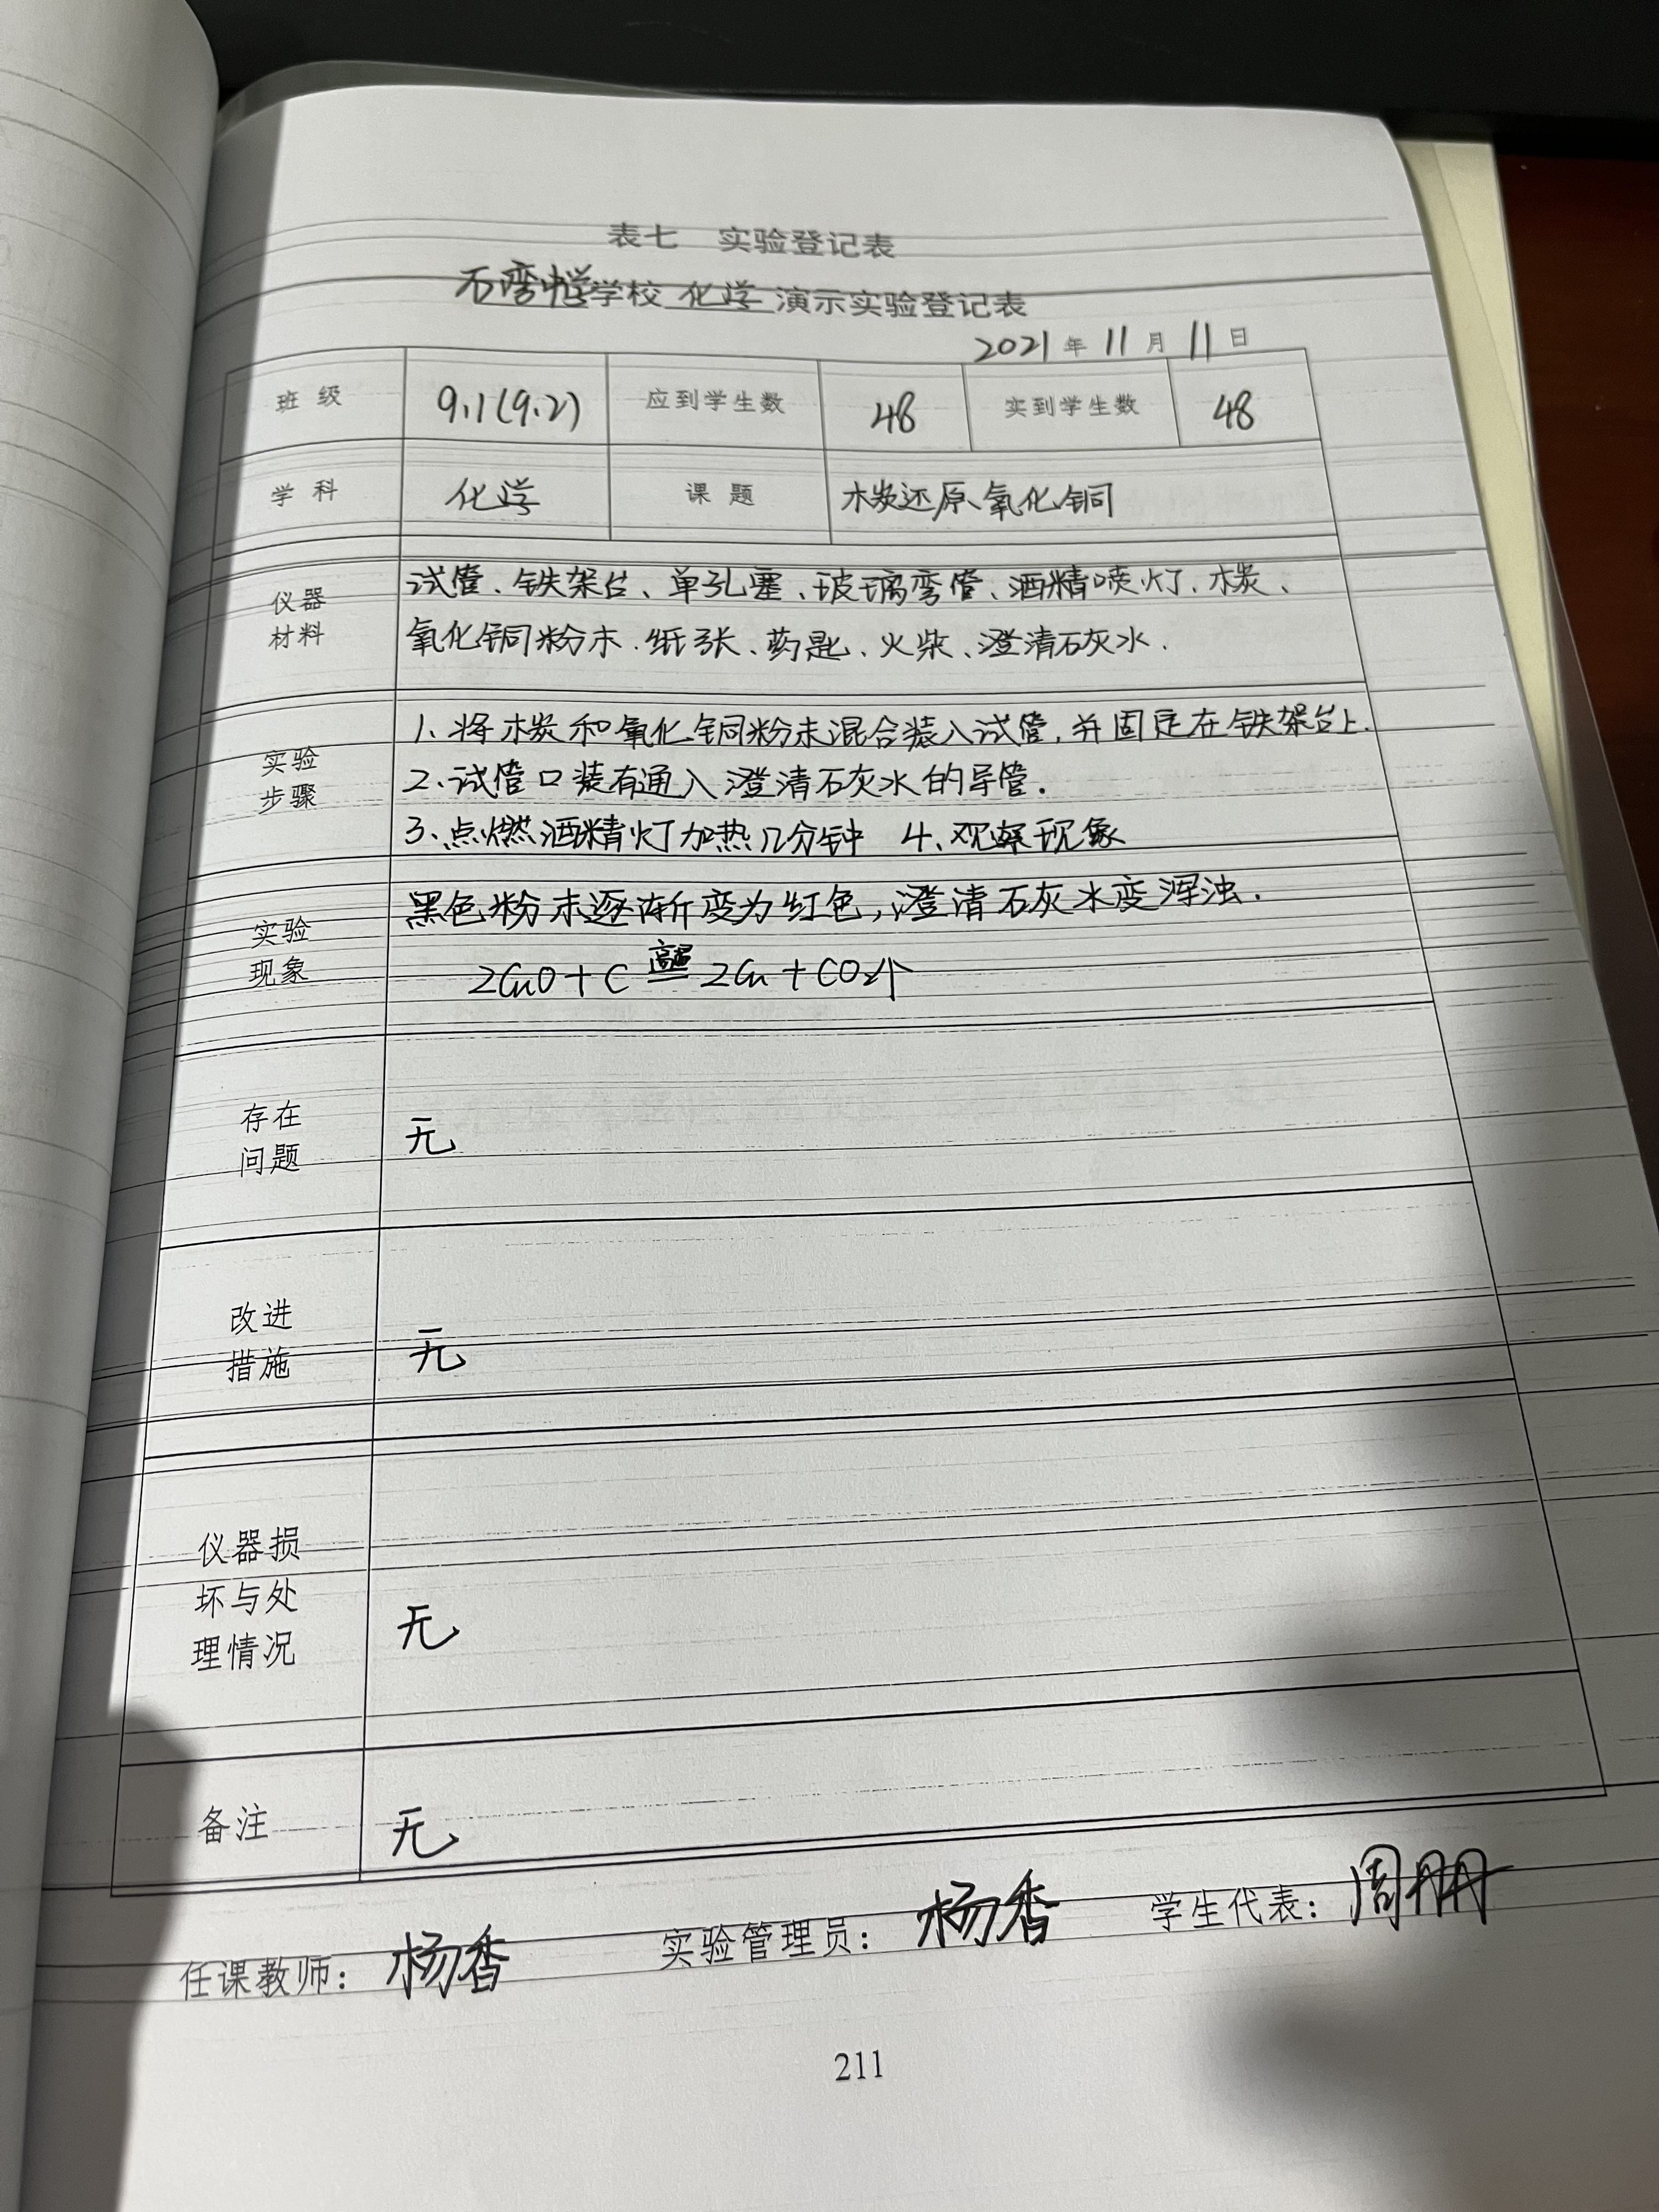 表七 实验登记表
石湾中学学校 化学 演示实验登记表
2021年11月11日
班级 9.1(9.2) 应到学生数 48 实到学生数 48
学科 化学 课题 木炭还原氧化铜
仪器材料
试管、铁架台、单孔塞、玻璃弯管、酒精喷灯、木炭、
氧化铜粉末、纸张、药匙、火柴、澄清石灰水.
实验步骤
1、将木炭和氧化铜粉末混合装入试管,并固定在铁架台上.
2、试管口装有通入澄清石灰水的导管.
3、点燃酒精灯加热几分钟 4、观察现象
实验现象
黑色粉末逐渐变为红色,澄清石灰水变浑浊.
2CuO+C 高温 2Cu+CO2↑
存在问题
无
改进措施
无
仪器损坏与处理情况
无
备注 无
任课教师: 杨香 实验管理员: 杨香 学生代表: 周朋
211